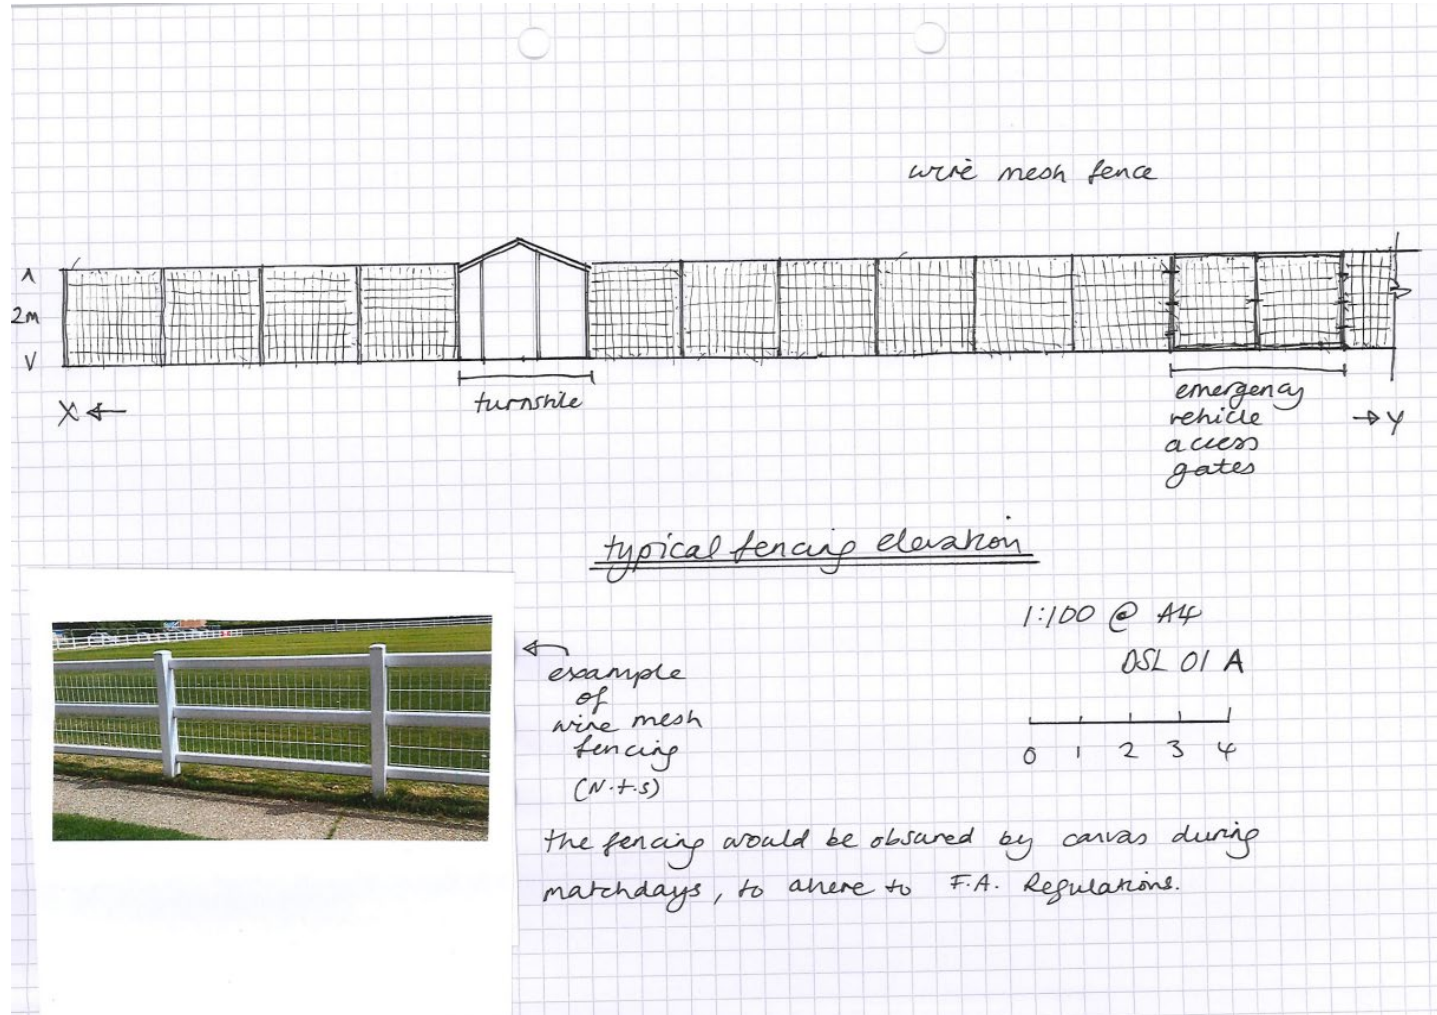 wire mesh fence
2m
X
turnstile
emergency
vehicle
access
gates
Y
typical fencing elevation
1:100 @ A4
DSL 01 A
0 1 2 3 4
example
of
wire mesh
fencing
(N.t.s)
the fencing would be obsured by canvas during
matchdays, to ahere to F.A. Regulations.